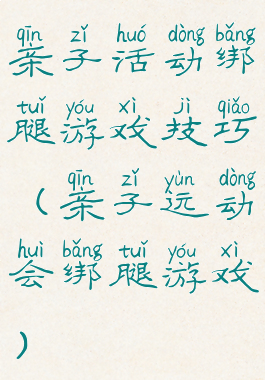 qīn zǐ huó dòng bǎng
亲子活动绑
tuǐ yóu xì jì qiǎo
腿游戏技巧
qīn zǐ yùn dòng
(亲子远动
huì bǎng tuǐ yóu xì
会绑腿游戏
)